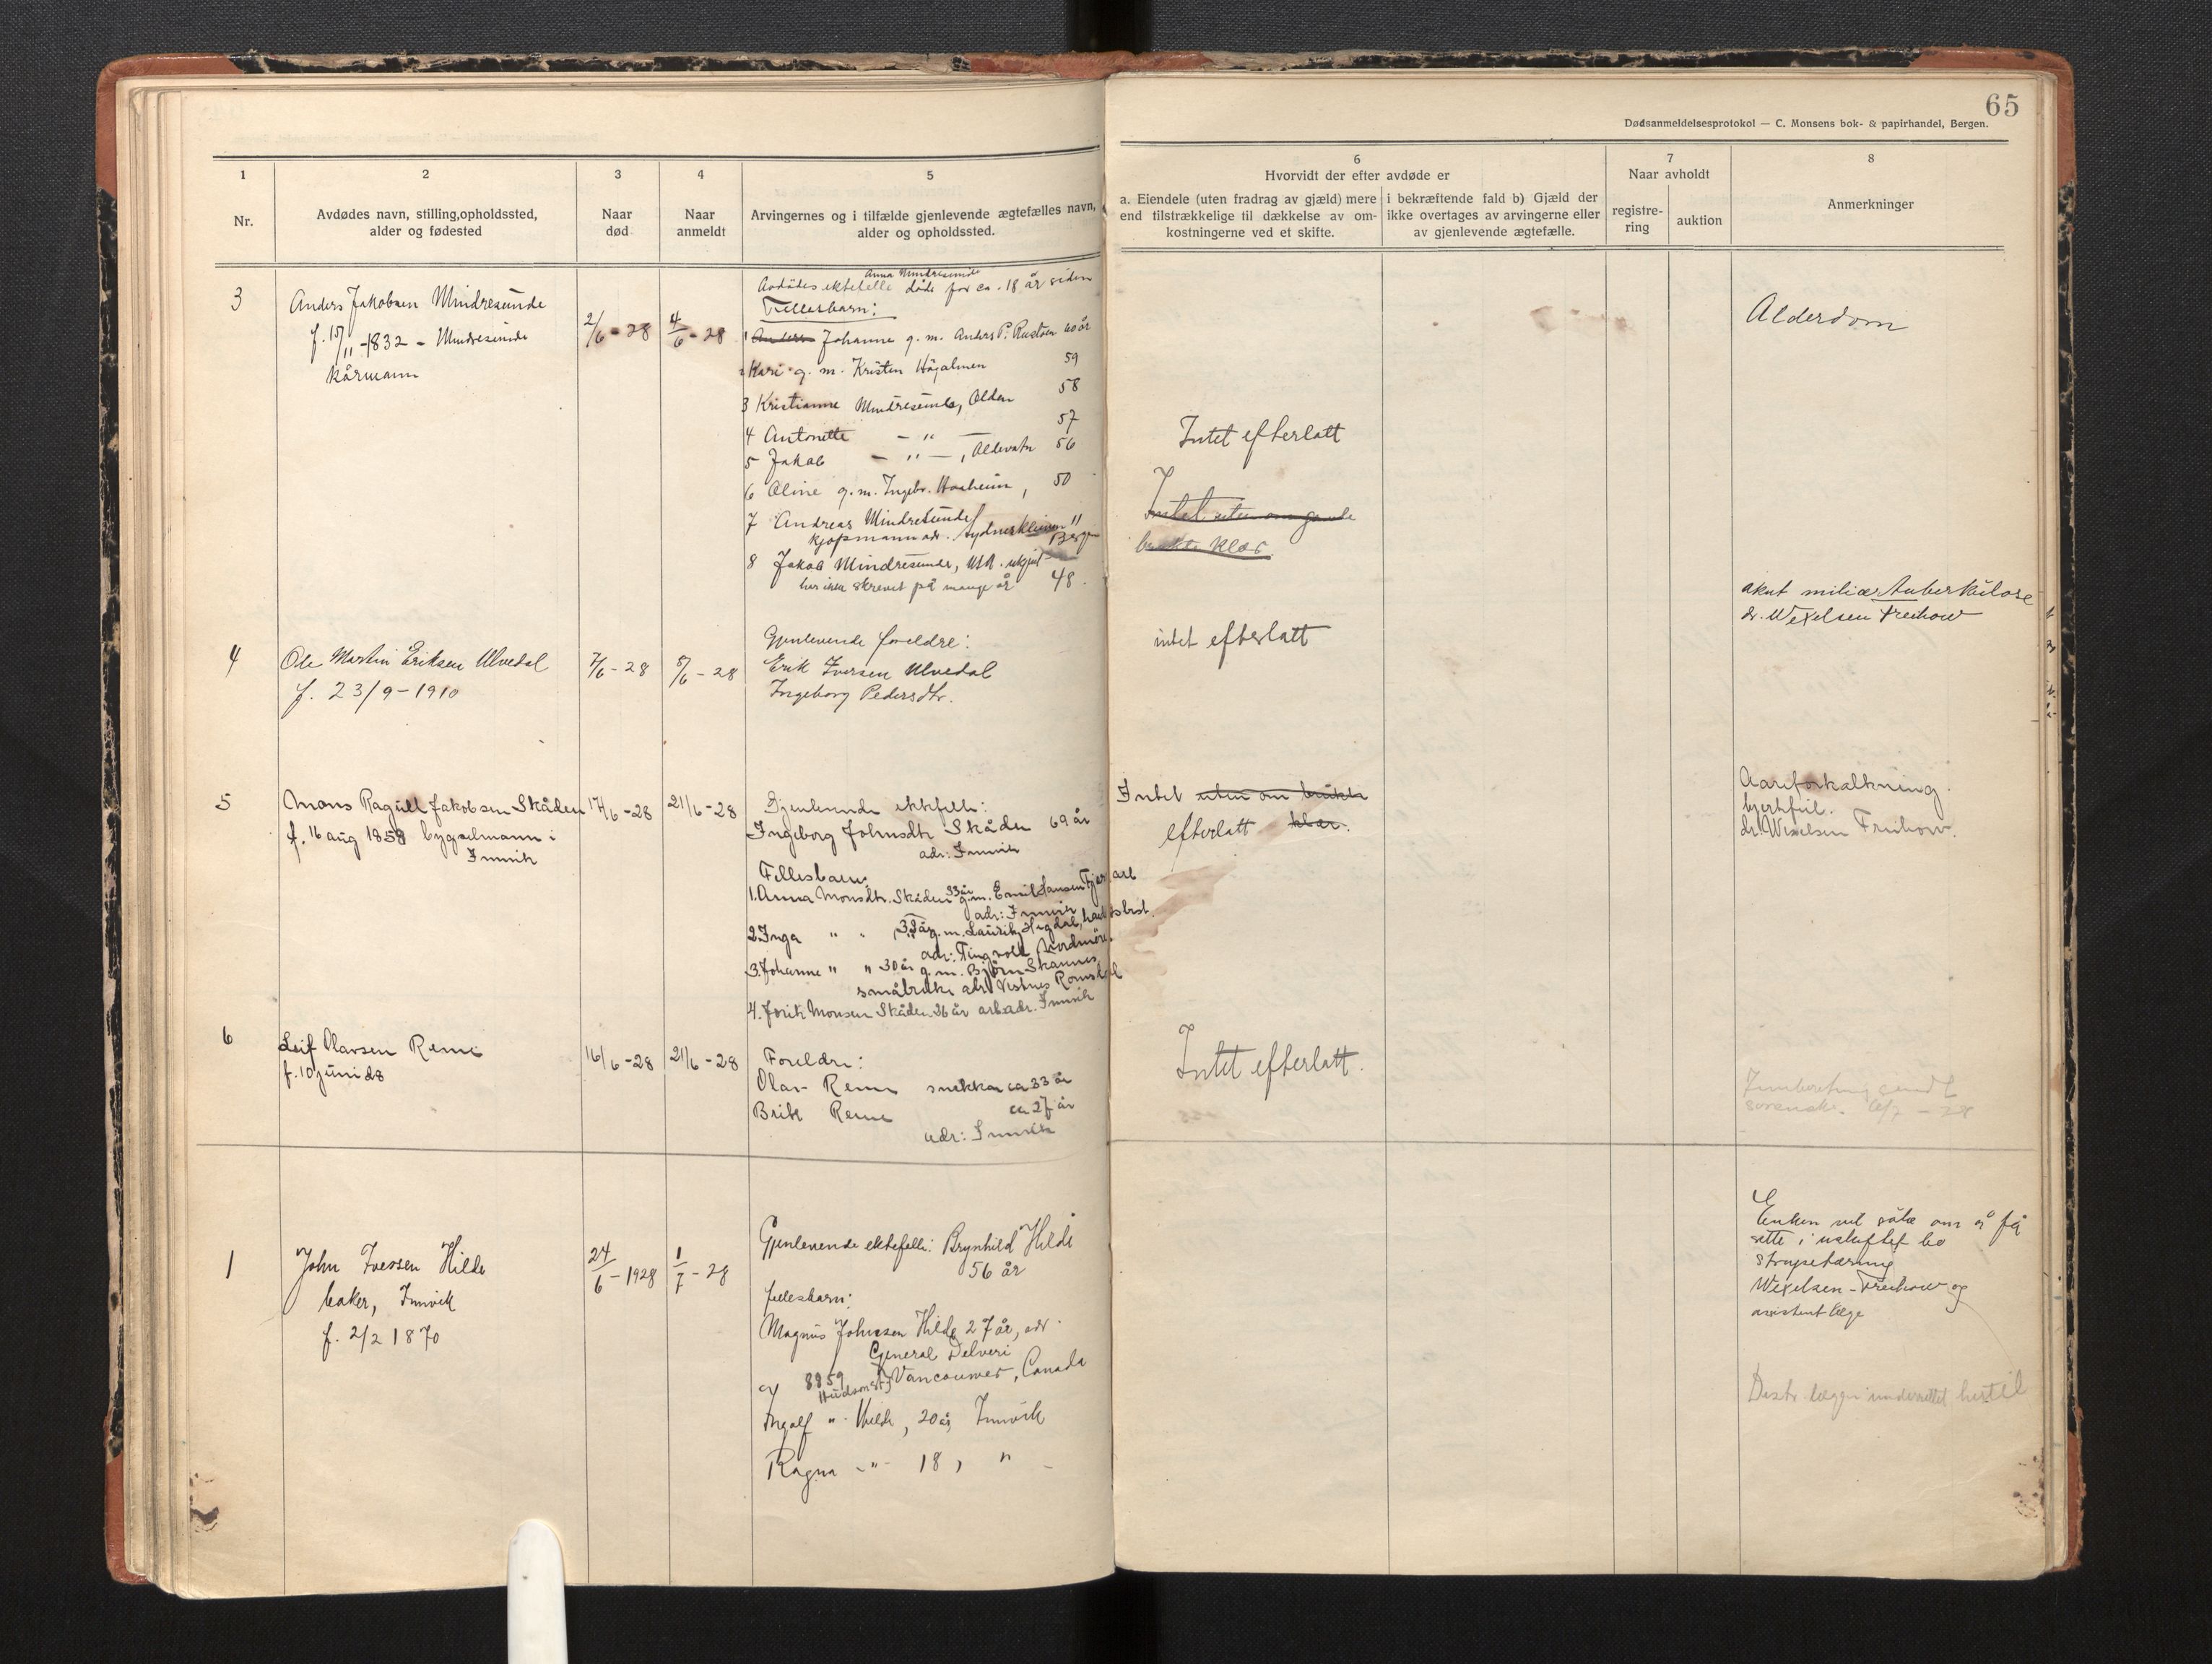 65
Dødsanmeldelsesprotokol — C. Monsens bok- & papirhandel, Bergen.
1
Nr.
2
Avdødes navn, stilling, opholdssted,
alder og fødested
3
Naar
død
4
Naar
anmeldt
5
Arvingernes og i tilfælde gjenlevende ægtefælles navn,
alder og opholdssted.
6
Hvorvidt der efter avdøde er
a. Eiendele (uten fradrag av gjæld) mere
end tilstrækkelige til dækkelse av om-
kostningerne ved et skifte.
i bekræftende fald b) Gjæld der
ikke overtages av arvingerne eller
av gjenlevende ægtefælle.
7
Naar avholdt
registre-
ring
auktion
8
Anmerkninger
3
Anders Jakobsen Mindresunde
f. 15/11-1832 - Mindresunde
kårmann
2/6 - 28
4/6 - 28
Anna Mindresunde
Avdödes ektefelle döde for ca. 18 år siden
Fellesbarn:
1 Anders Johanne g. m. Anders P. Rustöen 60 år
2 Kari g. m. Kristen Högalmen 59
3 Kristianne Mindresunde, Olden 58
4 Antonette - " - 57
5 Jakob - " -, Oldevatn 56
6 Oline g. m. Ingebr. Haaheim, 50
7 Andreas Mindresunde
kjöpmann adr. Sydneskleiven 11
Bergen
8 Jakob Mindresunde, USA. ukjent
har ikke skrevet på mange år 48.
Intet efterlatt
Intet uten om gamle
brukte klær.
Alderdom
4
Ole Martin Eriksen Ulvedal
f. 23/9-1910
7/6 - 28
8/6 - 28
Gjenlevende foreldre:
Erik Iversen Ulvedal
Ingeborg Pedersdtr.
intet efterlatt
akut miliær Tuberkulose
dr. Wexelsen Freihow
5
Mons Ragvell Jakobsen Skåden
f. 16 aug 1858 bygselmann i
Innvik
17/6 - 28
21/6 - 28
Gjenlevende ektefelle:
Ingeborg Johnsdtr Skåden 69 år
adr: Innvik
Fellesbarn:
1. Anna Monsdtr. Skåden 33 år g.m. Emil Hansen Tjer arb
adr: Innvik
2. Inga " " 32 år g.m. Laurits Hegdal,
adr: Tingvoll Nordmöre.
3. Johanne " " 30 år g.m. Björn Skannes
småbruker adr. Vestnes Romsdal
4. Jorik Monsen Skåden 26 år arb. adr. Innvik
Intet uten om brukte
efterlatt klær.
Aareforkalkning.
hjertfeil.
dr. Wexelsen Freihow.
6
Leif Olavsen Reme
f. 10 juni 28
16/6 - 28
21/6 - 28
Foreldre:
Olav Reme snekker ca 33 år
Brite Reme ca 27 år
adr: Innvik
Intet efterlatt.
Innberetning sendt
sorenskr. 6/7 - 28
1
John Iversen Hilde
baker, Innvik
f. 2/2 1870
24/6 - 1928
1/7 - 28
Gjenlevende ektefelle: Brynhild Hilde
56 år
fellesbarn:
Magnus Johnsen Hilde 27 år, adr.
General Delveri
8959
Hudson st. Vancouver, Canada
Ingolf " Hilde, 20 år, Innvik
Ragna - " - 18, "
Enken vil söke om å få
sitte i uskiftet bo
strupetæring
Wexelsen-Freihow og
assistent læge
Distr. lægen underrettet hertil